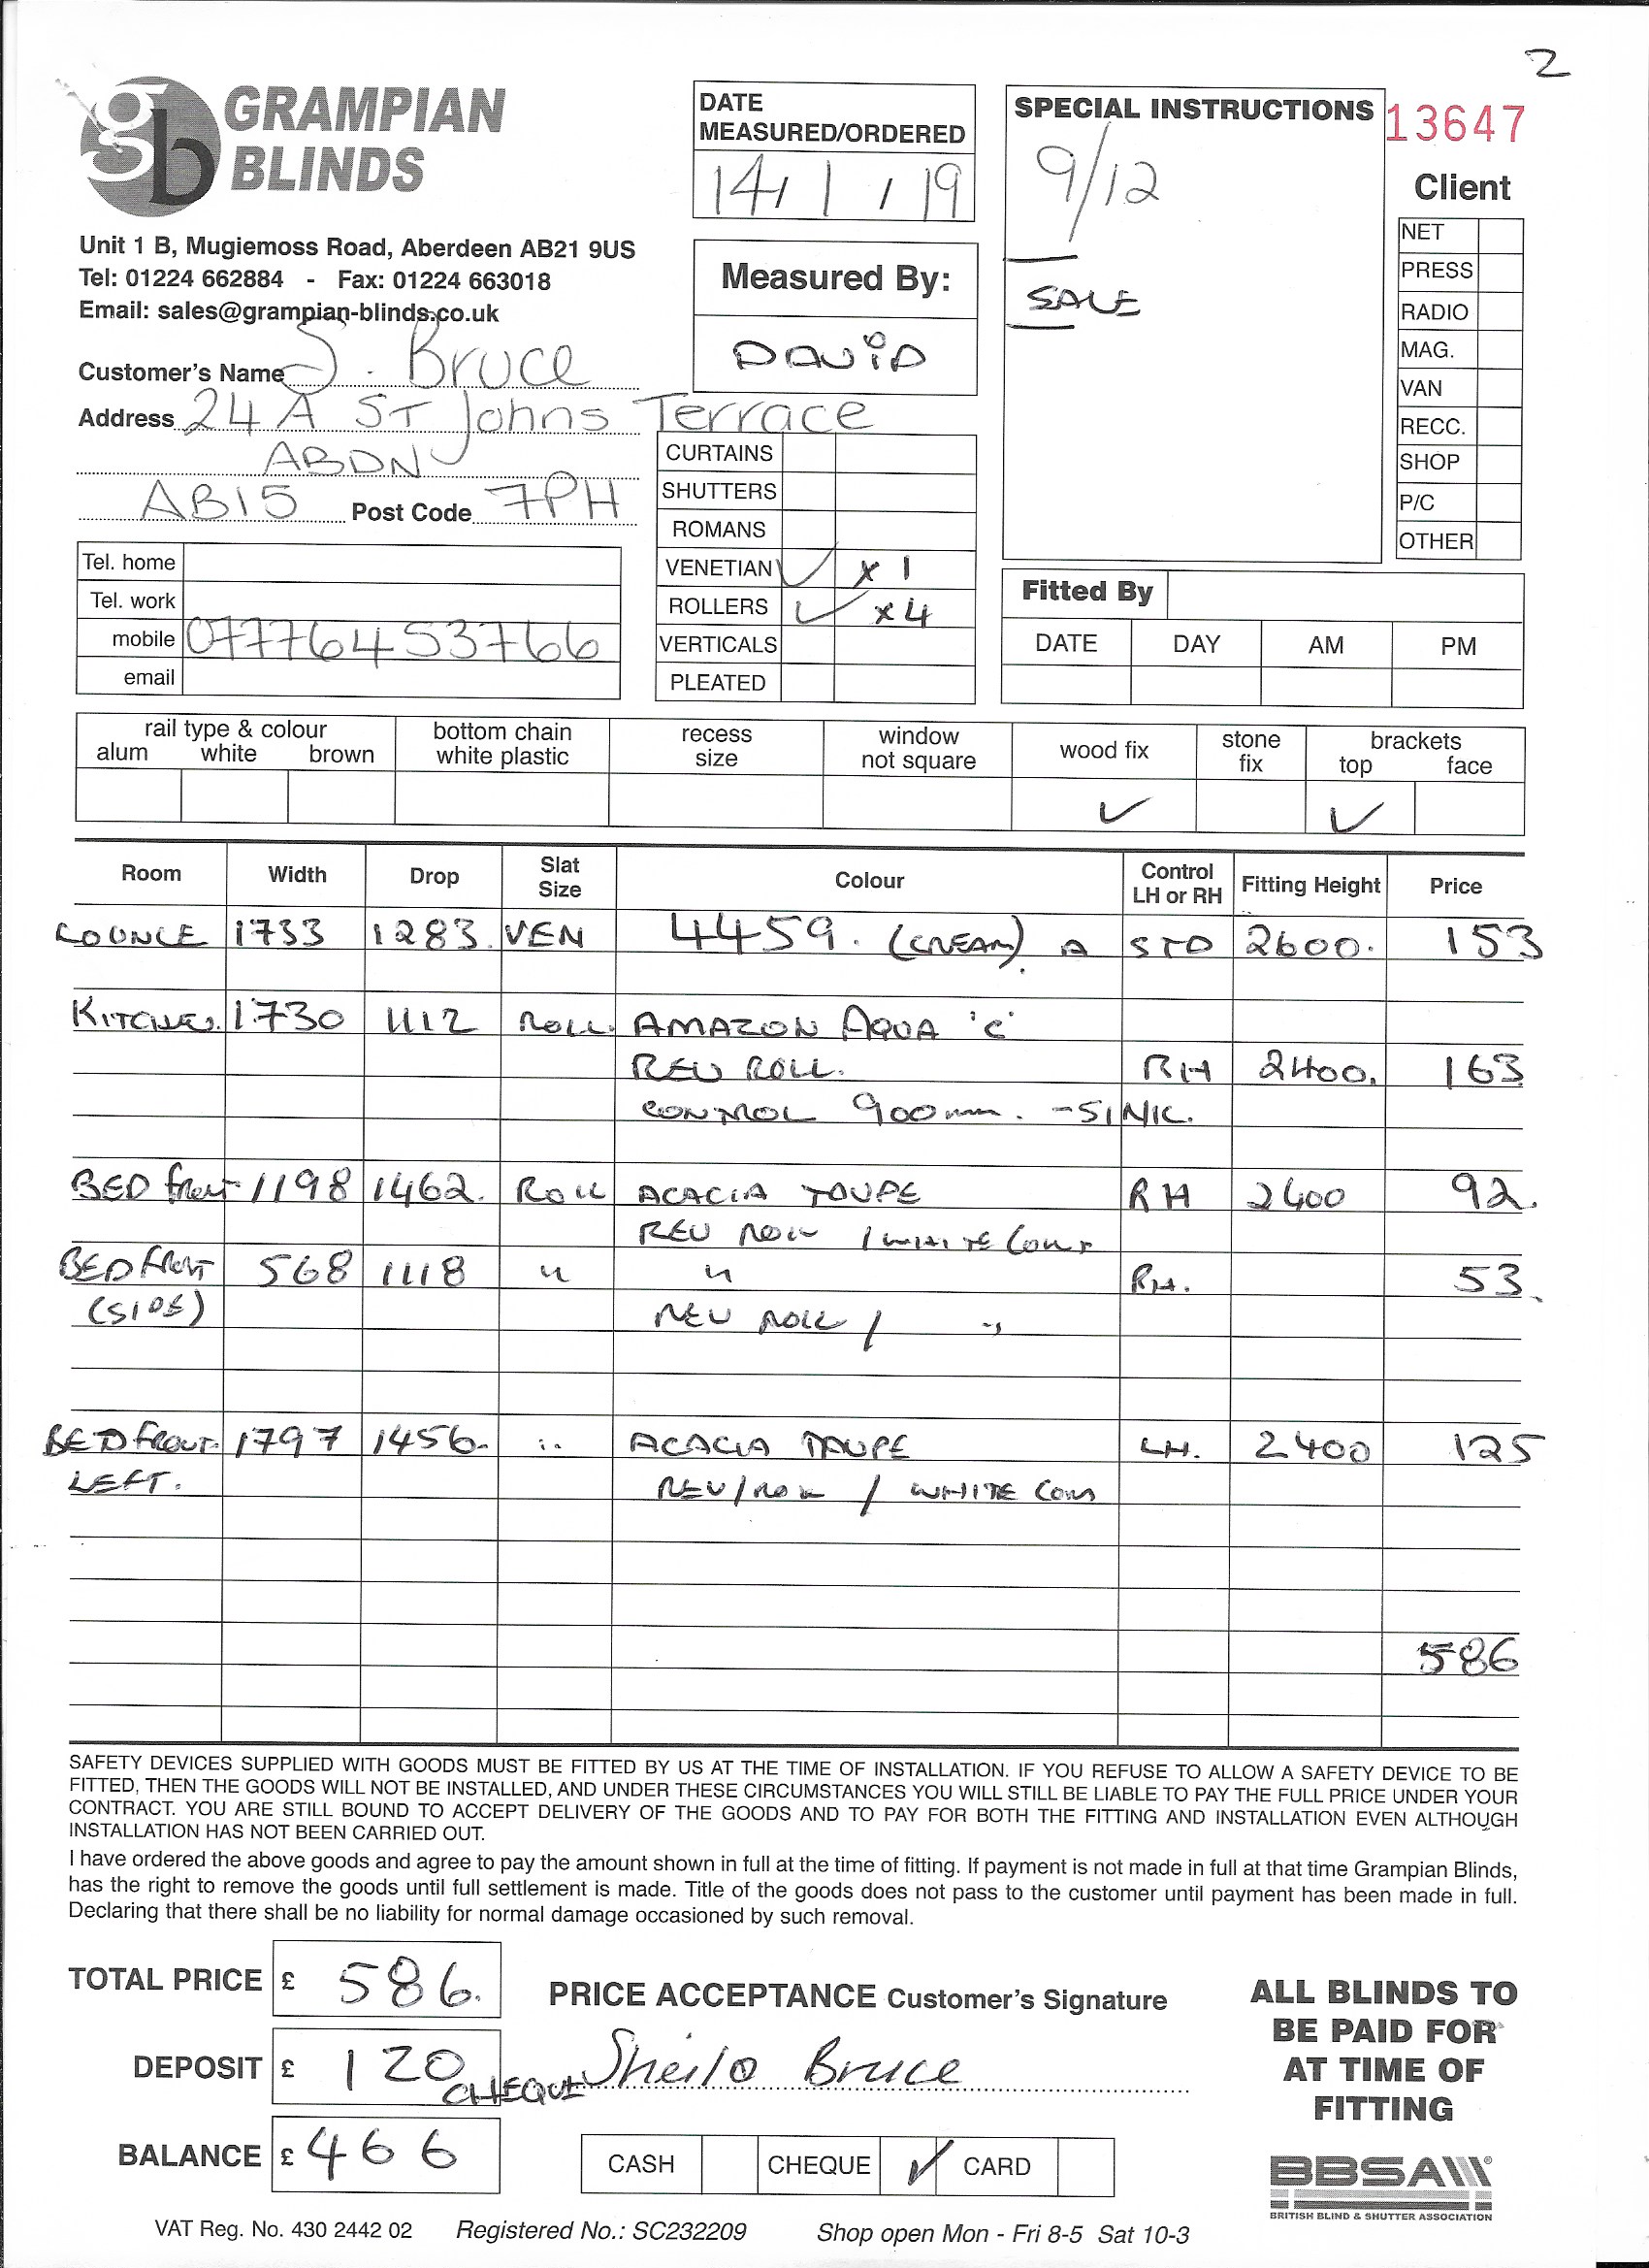 2
GRAMPIAN
BLINDS
Unit 1 B, Mugiemoss Road, Aberdeen AB21 9US
Tel: 01224 662884 - Fax: 01224 663018
Email: sales@grampian-blinds.co.uk
Customer's Name S. Bruce
Address 24 A ST Johns Terrace
ABDN
AB15 Post Code 7PH
Tel. home
Tel. work
mobile 07776453766
email
DATE
MEASURED/ORDERED
14/1/19
Measured By:
DAVID
CURTAINS
SHUTTERS
ROMANS
VENETIAN ✓ x 1
ROLLERS ✓ x 4
VERTICALS
PLEATED
SPECIAL INSTRUCTIONS
9/12
SALE
13647
Client
NET
PRESS
RADIO
MAG.
VAN
RECC.
SHOP
P/C
OTHER
Fitted By
DATE DAY AM PM
rail type & colour
alum white brown
bottom chain
white plastic
recess
size
window
not square
wood fix ✓
stone
fix
brackets
top face
✓
Room Width Drop Slat Size Colour Control LH or RH Fitting Height Price
LOUNGE 1733 1283. VEN 4459. (CREAM). A STD 2600. 153
KITCHEN. 1730 1112 ROLL. AMAZON AQUA 'C'
REV ROLL. RH 2400. 163
CONTROL 900mm. - SINK.
BED Front 1198 1462. ROLL ACACIA TOUPE RH 2400 92.
REV ROLL / WHITE Cont
BED FRONT 568 1118 " " RH. 53.
(SIDE)
REV ROLL / "
BED FRONT. 1797 1456. " ACACIA TAUPE LH. 2400 125
LEFT. REV/ROLL / WHITE
586
SAFETY DEVICES SUPPLIED WITH GOODS MUST BE FITTED BY US AT THE TIME OF INSTALLATION. IF YOU REFUSE TO ALLOW A SAFETY DEVICE TO BE
FITTED, THEN THE GOODS WILL NOT BE INSTALLED, AND UNDER THESE CIRCUMSTANCES YOU WILL STILL BE LIABLE TO PAY THE FULL PRICE UNDER YOUR
CONTRACT. YOU ARE STILL BOUND TO ACCEPT DELIVERY OF THE GOODS AND TO PAY FOR BOTH THE FITTING AND INSTALLATION EVEN ALTHOUGH
INSTALLATION HAS NOT BEEN CARRIED OUT.
I have ordered the above goods and agree to pay the amount shown in full at the time of fitting. If payment is not made in full at that time Grampian Blinds,
has the right to remove the goods until full settlement is made. Title of the goods does not pass to the customer until payment has been made in full.
Declaring that there shall be no liability for normal damage occasioned by such removal.
TOTAL PRICE £ 586.
DEPOSIT £ 120 CHEQUE
BALANCE £ 466
PRICE ACCEPTANCE Customer's Signature
Sheila Bruce
CASH CHEQUE ✓ CARD
ALL BLINDS TO
BE PAID FOR
AT TIME OF
FITTING
BBSA
BRITISH BLIND & SHUTTER ASSOCIATION
VAT Reg. No. 430 2442 02 Registered No.: SC232209 Shop open Mon - Fri 8-5 Sat 10-3